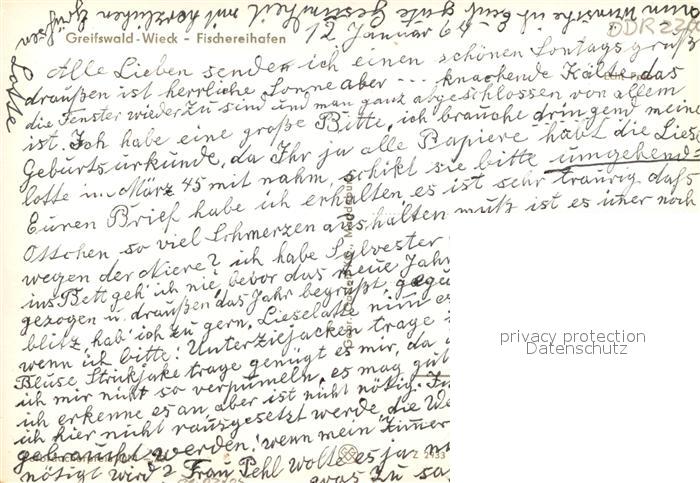 Greifswald-Wieck - Fischereihafen
12 Januar 64
DDR
Alle Lieben sende ich einen schönen Sontagsgruß
draußen ist herrliche Sonne aber ... knackende Kälte, das
die Fenster wieder zu sind und man ganz abgeschlossen von allem
ist. Ich habe eine große Bitte, ich brauche dringend meine
Geburtsurkunde, da Ihr ja alle Papiere habt die Liese
lotte im März 45 mit nahm, schikt sie bitte umgehend
Euren Brief habe ich erhalten, es ist sehr traurig daß
Ottchen so viel Schmerzen aushalten muß ist es imer noch
wegen der Niere? ich habe Sylvester
ins Bett geh' ich nie, bevor das neue Jahr
gezogen u. draußen das Jahr begrüßt,
blitz hab' ich zu gern. Lieselotte nun es
wenn ich bitte! Unterziejacken trage
Bluse Strikjake trage genügt es mir, da
ich mir nicht so verpumeln, es mag gut
ich erkenne es an, aber ist nicht nötig.
ich hier nicht rausgesetzt werde, die We
gebrauch werden! wenn mein Zimmer
nötigt wird? Frau Pehl wollte es ja
was zu sa
Lotte
privacy protection
Datenschutz